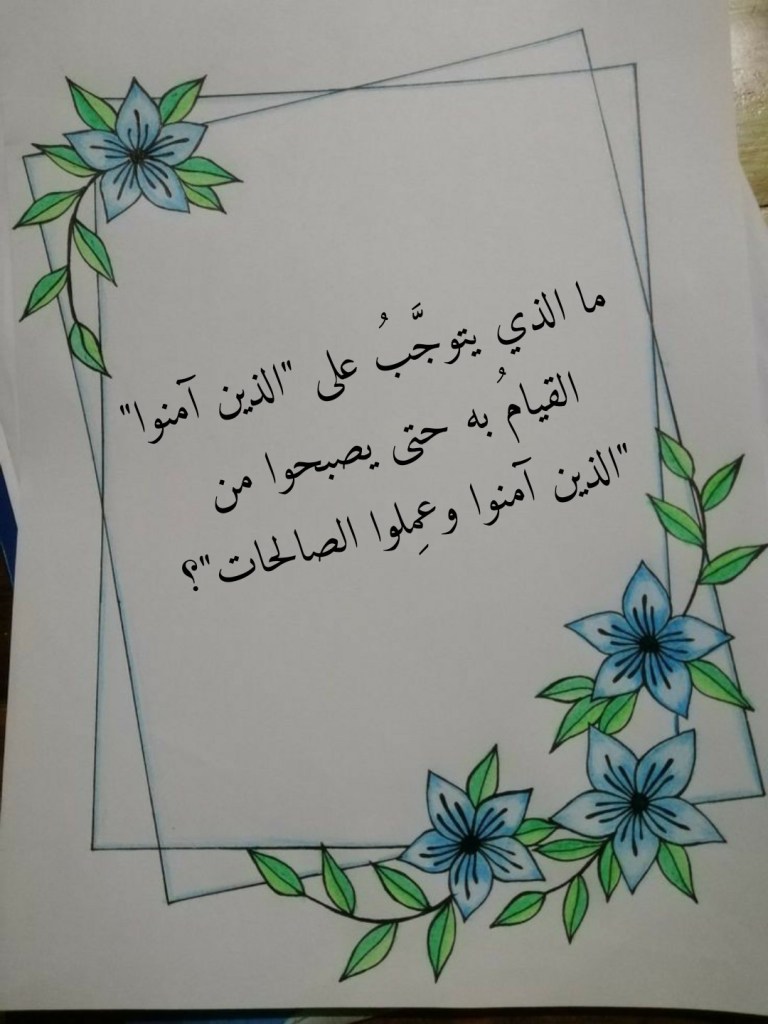 ما الذي يتوجَّبُ على "الذين آمنوا"
القيامُ به حتى يصبحوا من
"الذين آمنوا وعمِلوا الصالحات"؟